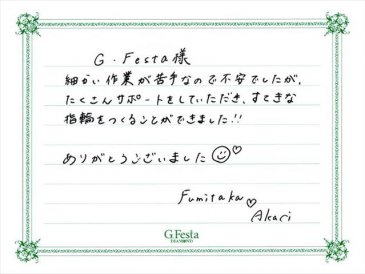 G・Festa様
細かい作業が苦手なので不安でしたが、
たくさんサポートをしていただき、すてきな
指輪をつくることができました!!
ありがとうございました
Fumitaka
Akari
G.Festa
DIAMOND